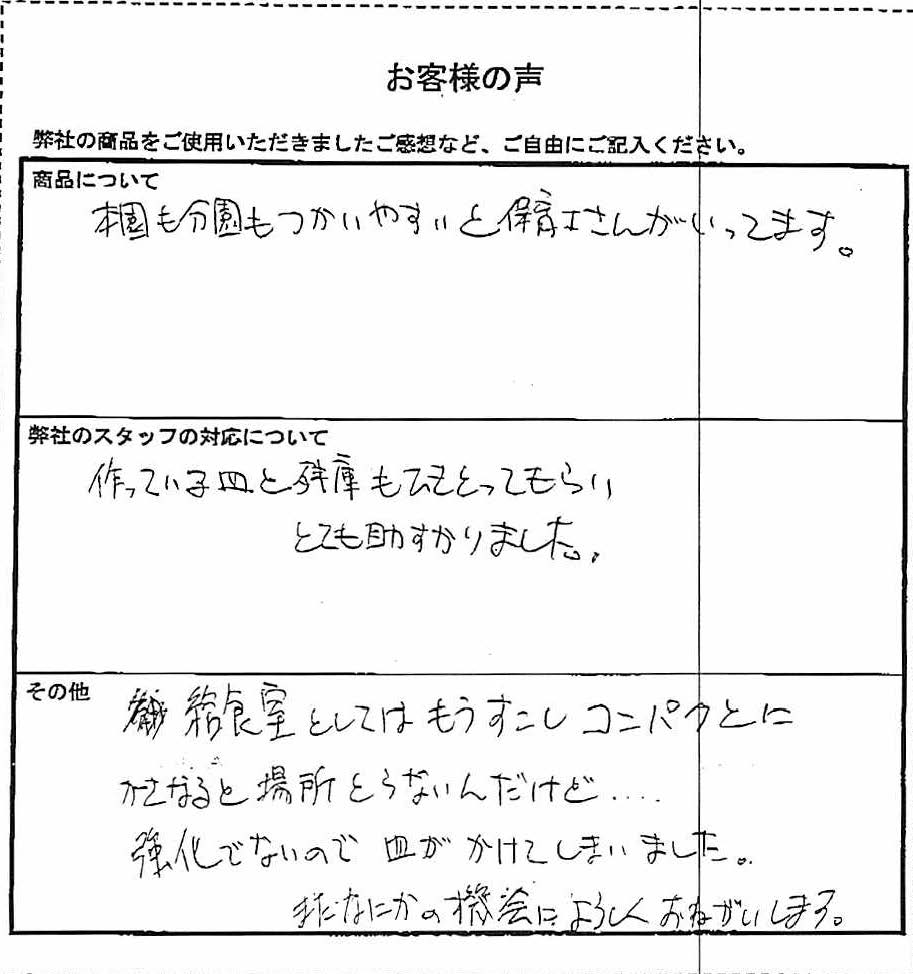 お客様の声
弊社の商品をご使用いただきましたご感想など、ご自由にご記入ください。
商品について
本園も分園もつかいやすいと保育士さんがいってます。
弊社のスタッフの対応について
作っている皿と残庫もひきとってもらい
とても助すかりました。
その他
給食室としてはもうすこしコンパクトに
かさなると場所とらないんだけど‥‥
強化でないので皿がかけてしまいました。
またなにかの機会によろしくおねがいします。